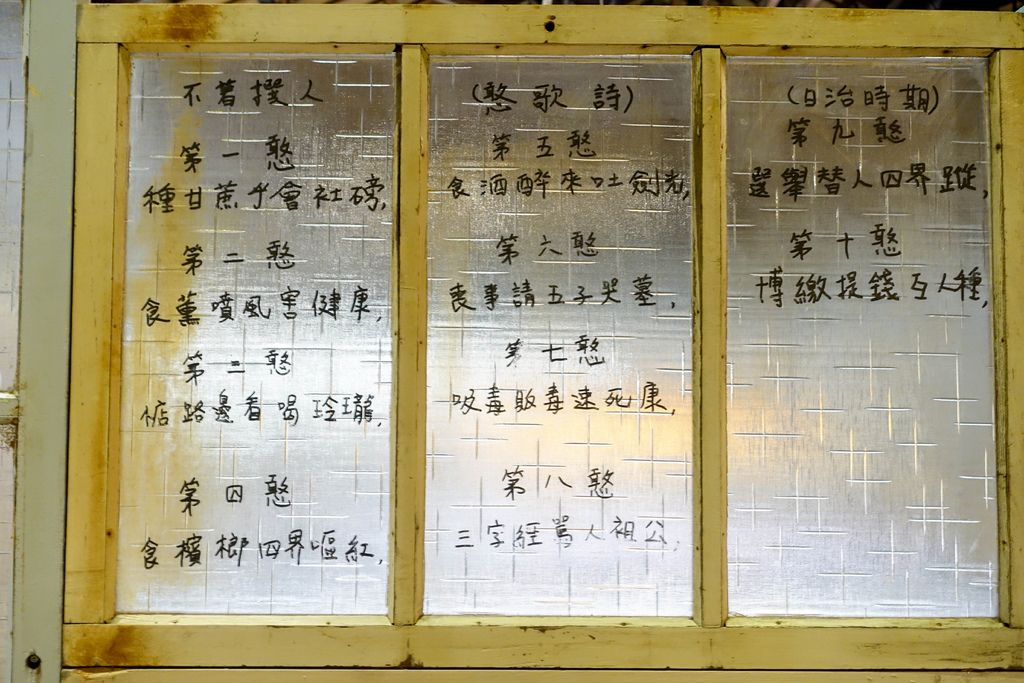 不著撰人
第一憨
種甘蔗乎會社磅,
第二憨
食薰噴風害健康,
第三憨
惦路邊看喝玲瓏,
第四憨
食檳榔四界嘔紅,
(憨歌詩)
第五憨
食酒醉來吐劍光,
第六憨
喪事請五子哭墓,
第七憨
吸毒販毒速死康,
第八憨
三字經罵人祖公,
(日治時期)
第九憨
選舉替人四界蹤,
第十憨
博繳提錢互人種,